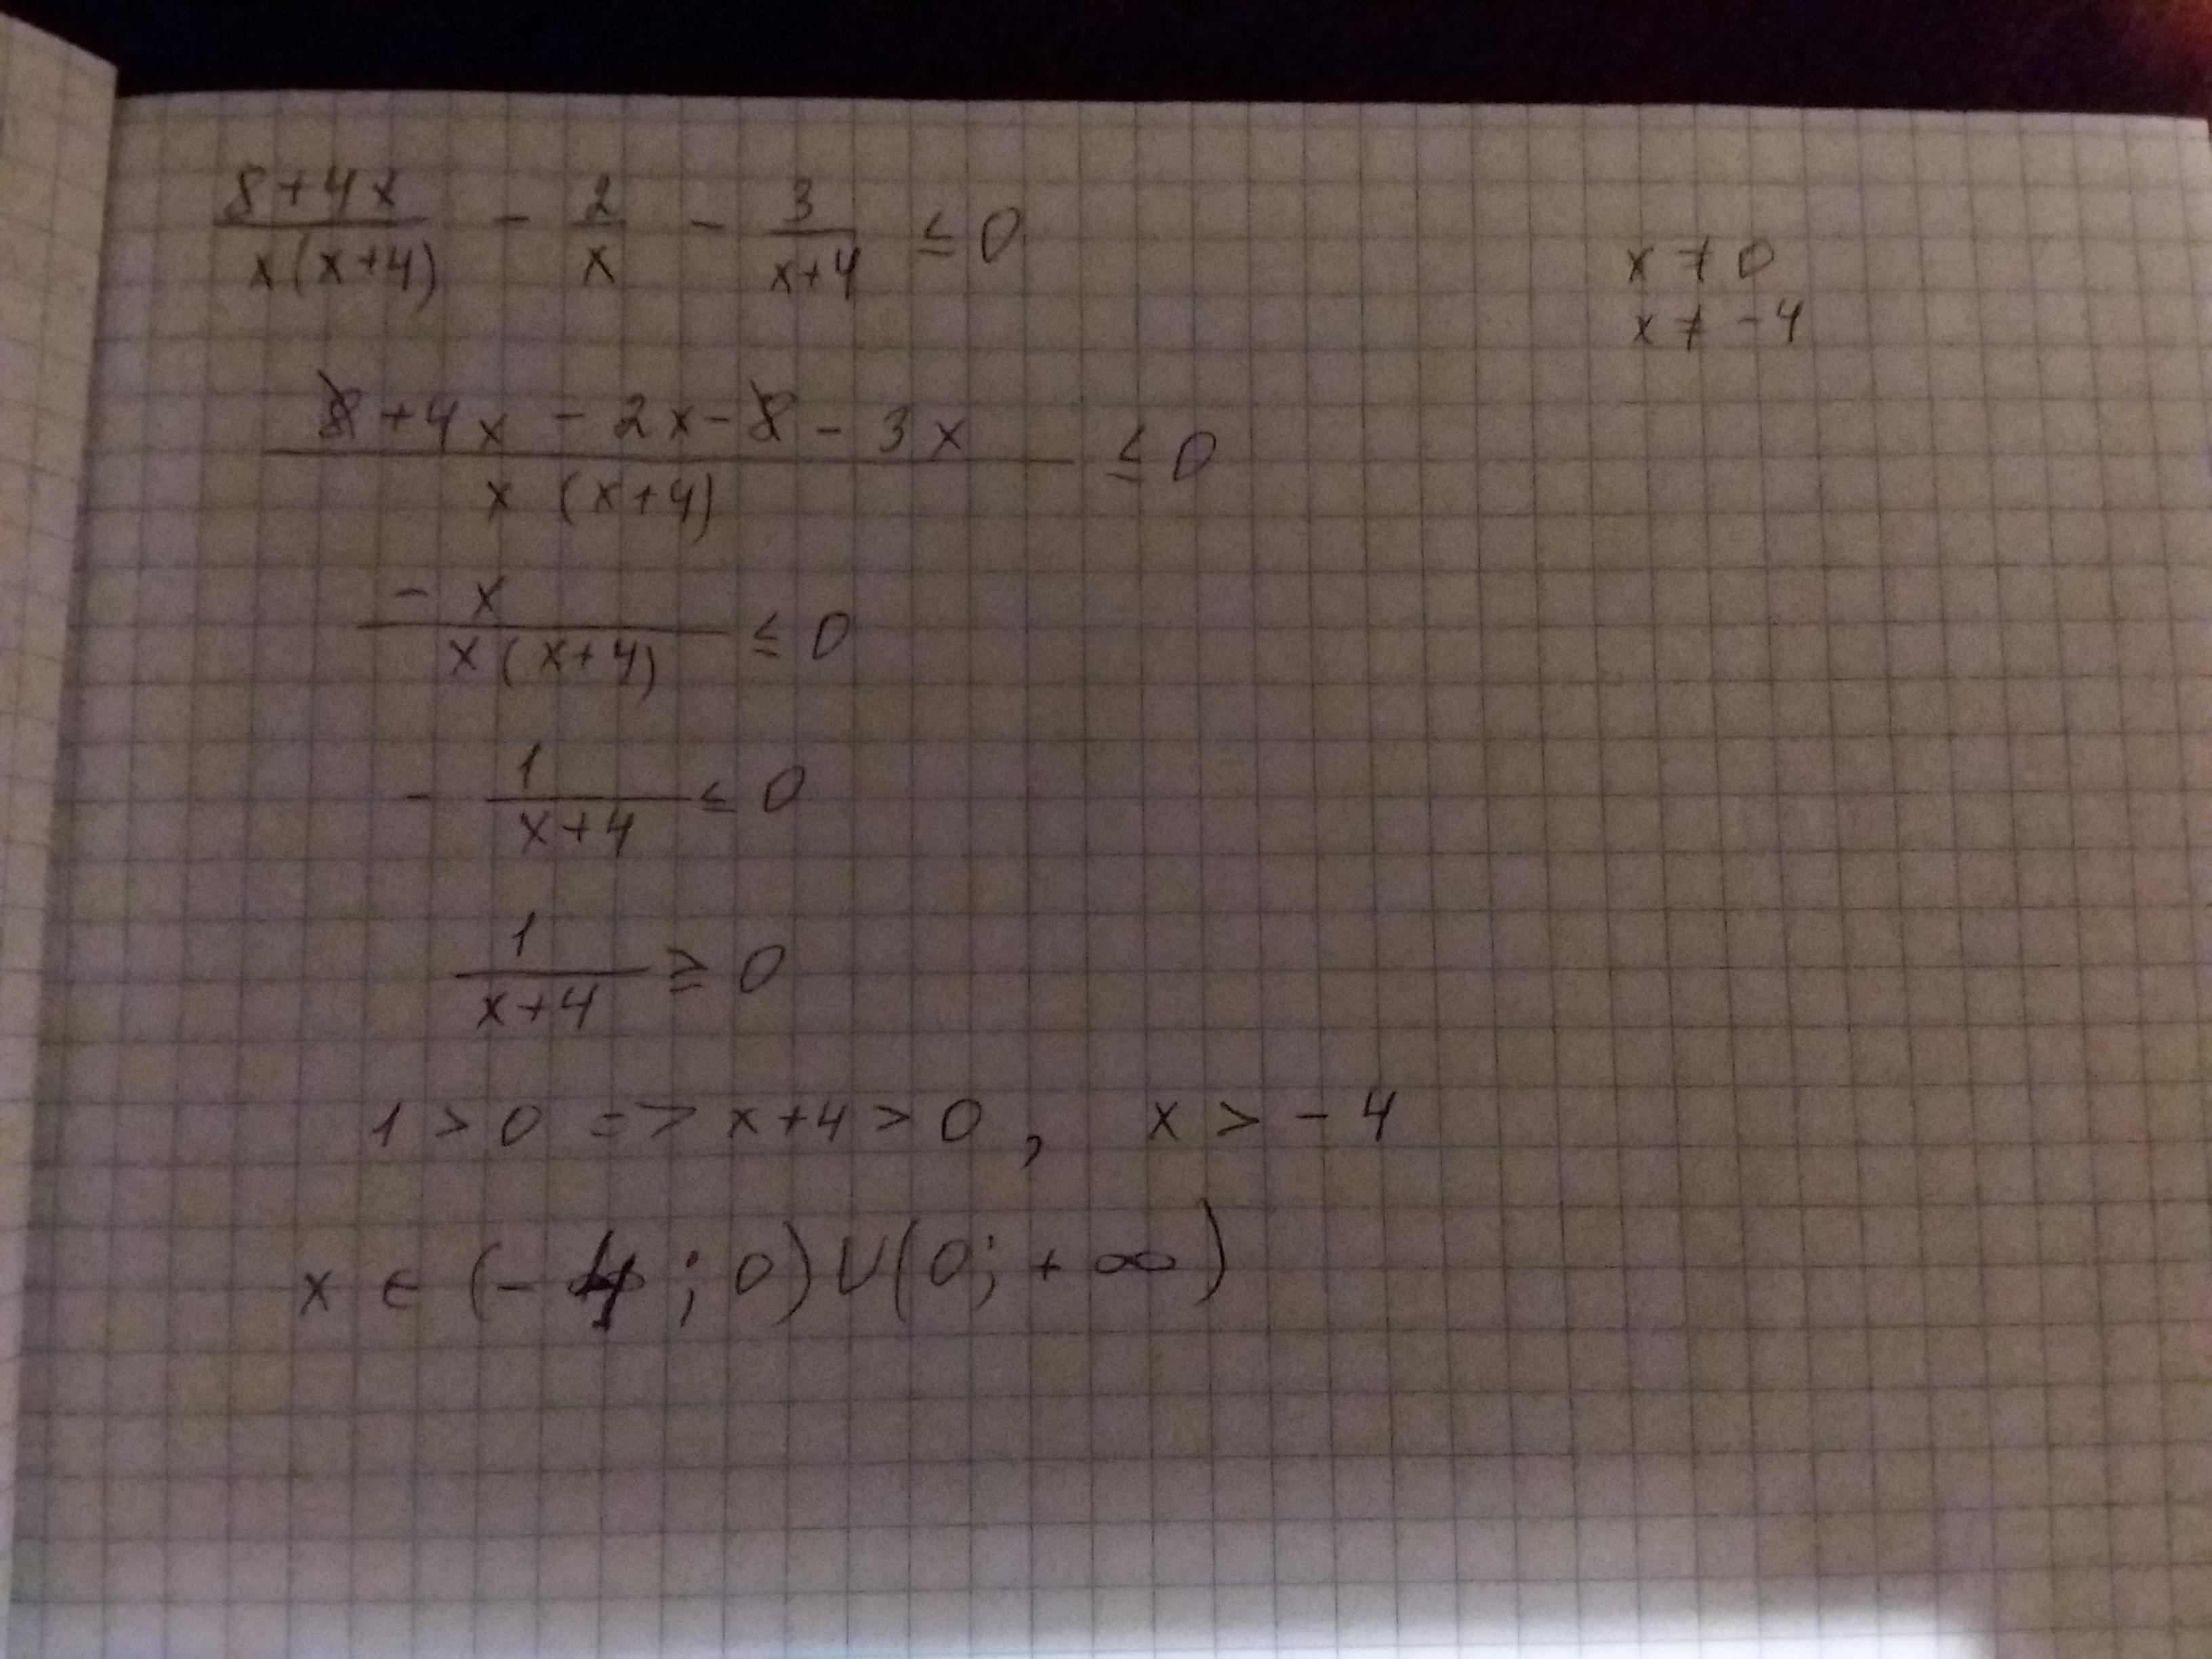 (8+4x)/(x(x+4)) - 2/x - 3/(x+4) ≤ 0
x ≠ 0
x ≠ -4
(8+4x - 2x - 8 - 3x)/(x (x+4)) ≤ 0
(- x)/(x(x+4)) ≤ 0
- 1/(x+4) ≤ 0
1/(x+4) ≥ 0
1 > 0 => x+4 > 0 , x > - 4
x ∈ (- 4 ; 0) U (0; + ∞)